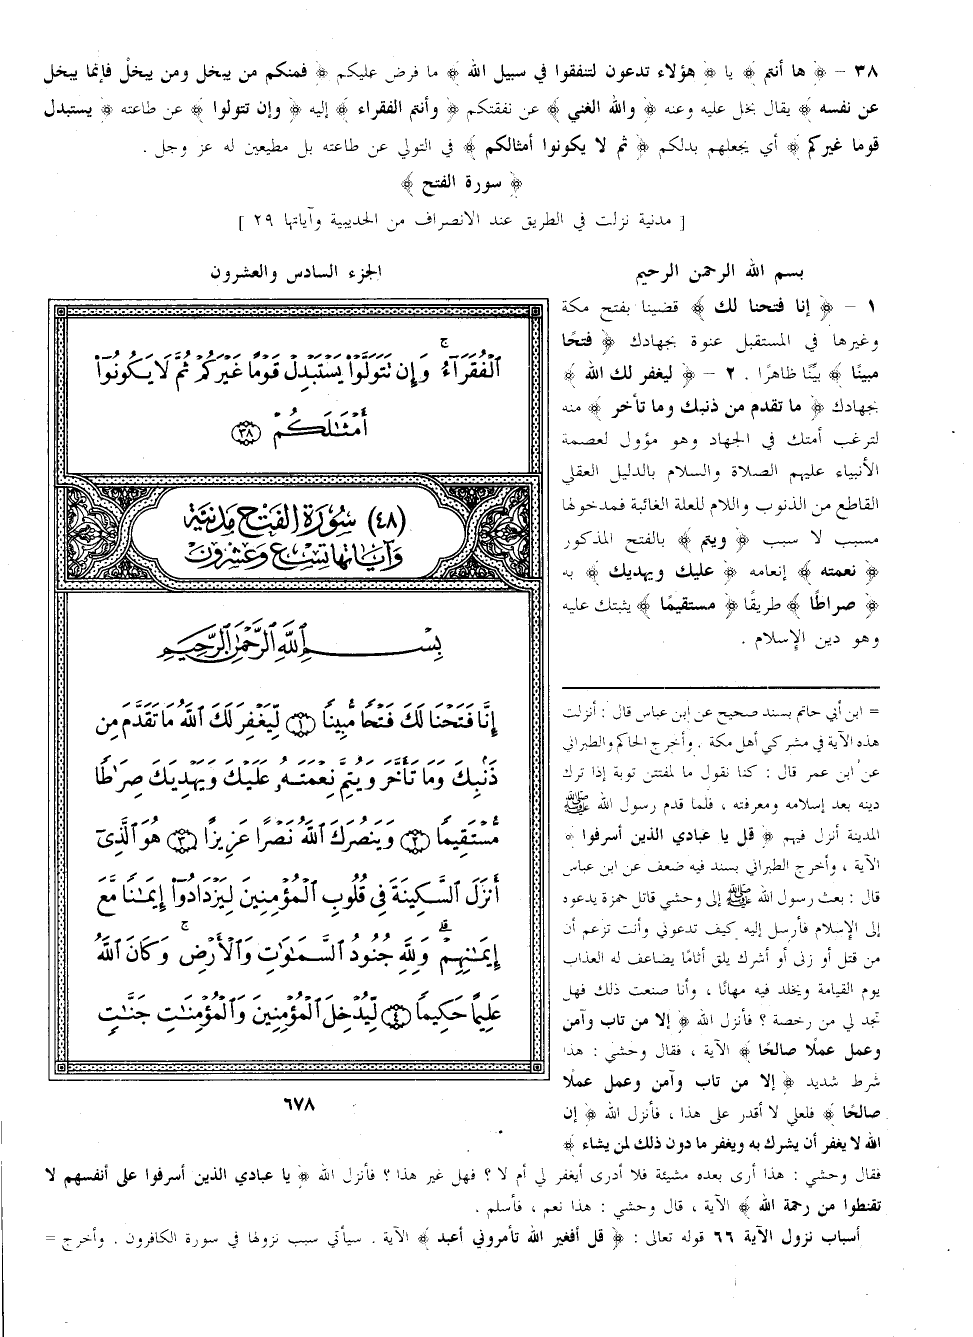 ٣٨ – ﴿ ها أنتم ﴾ يا ﴿ هؤلاء تدعون لتنفقوا في سبيل الله ﴾ ما فرض عليكم ﴿ فمنكم من يبخل ومن يبخل فإنما يبخل
عن نفسه ﴾ يقال بخل عليه وعنه ﴿ والله الغني ﴾ عن نفقتكم ﴿ وأنتم الفقراء ﴾ إليه ﴿ وإن تتولوا ﴾ عن طاعته ﴿ يستبدل
قوما غيركم ﴾ أي يجعلهم بدلكم ﴿ ثم لا يكونوا أمثالكم ﴾ في التولي عن طاعته بل مطيعين له عز وجل .
﴿ سورة الفتح ﴾
[ مدنية نزلت في الطريق عند الانصراف من الحديبية وآياتها ٢٩ ]
بسم الله الرحمن الرحيم
١ – ﴿ إنا فتحنا لك ﴾ قضينا بفتح مكة
وغيرها في المستقبل عنوة بجهادك ﴿ فتحًا
مبينًا ﴾ بيِّنًا ظاهرًا . ٢ – ﴿ ليغفر لك الله ﴾
بجهادك ﴿ ما تقدم من ذنبك وما تأخر ﴾ منه
لترغب أمتك في الجهاد وهو مؤول لعصمة
الأنبياء عليهم الصلاة والسلام بالدليل العقلي
القاطع من الذنوب واللام للعلة الغائية فمدخولها
مسبب لا سبب ﴿ ويتم ﴾ بالفتح المذكور
﴿ نعمته ﴾ إنعامه ﴿ عليك ويهديك ﴾ به
﴿ صراطًا ﴾ طريقًا ﴿ مستقيمًا ﴾ يثبتك عليه
وهو دين الإسلام .
الجزء السادس والعشرون
الْفُقَرَآءُ ۚ وَإِن تَتَوَلَّوْا۟ يَسْتَبْدِلْ قَوْمًا غَيْرَكُمْ ثُمَّ لَا يَكُونُوٓا۟
أَمْثَٰلَكُم ٣٨
(٤٨) سُورَةُ الفَتْحِ مَدَنِيَّة
وَآيَاتهَا تِسْعٌ وَعِشْرُونَ
بِسْمِ ٱللَّهِ ٱلرَّحْمَٰنِ ٱلرَّحِيمِ
إِنَّا فَتَحْنَا لَكَ فَتْحًا مُّبِينًا ١ لِّيَغْفِرَ لَكَ ٱللَّهُ مَا تَقَدَّمَ مِن
ذَنۢبِكَ وَمَا تَأَخَّرَ وَيُتِمَّ نِعْمَتَهُۥ عَلَيْكَ وَيَهْدِيَكَ صِرَٰطًا
مُّسْتَقِيمًا ٢ وَيَنصُرَكَ ٱللَّهُ نَصْرًا عَزِيزًا ٣ هُوَ ٱلَّذِىٓ
أَنزَلَ ٱلسَّكِينَةَ فِى قُلُوبِ ٱلْمُؤْمِنِينَ لِيَزْدَادُوٓا۟ إِيمَٰنًا مَّعَ
إِيمَٰنِهِمْ ۗ وَلِلَّهِ جُنُودُ ٱلسَّمَٰوَٰتِ وَٱلْأَرْضِ ۚ وَكَانَ ٱللَّهُ
عَلِيمًا حَكِيمًا ٤ لِّيُدْخِلَ ٱلْمُؤْمِنِينَ وَٱلْمُؤْمِنَٰتِ جَنَّٰتٍ
٦٧٨
= ابن أبي حاتم بسند صحيح عن ابن عباس قال : أنزلت
هذه الآية في مشركي أهل مكة . وأخرج الحاكم والطبراني
عن ابن عمر قال : كنا نقول ما لمفتتن توبة إذا ترك
دينه بعد إسلامه ومعرفته ، فلما قدم رسول الله ﷺ
المدينة أنزل فيهم ﴿ قل يا عبادي الذين أسرفوا ﴾
الآية ، وأخرج الطبراني بسند فيه ضعف عن ابن عباس
قال : بعث رسول الله ﷺ إلى وحشي قاتل حمزة يدعوه
إلى الإسلام فأرسل إليه كيف تدعوني وأنت تزعم أن
من قتل أو زنى أو أشرك يلق أثامًا يضاعف له العذاب
يوم القيامة ويخلد فيه مهانًا ، وأنا صنعت ذلك فهل
تجد لي من رخصة ؟ فأنزل الله ﴿ إلا من تاب وآمن
وعمل عملًا صالحًا ﴾ الآية ، فقال وحشي : هذا
شرط شديد ﴿ إلا من تاب وآمن وعمل عملًا
صالحًا ﴾ فلعلي لا أقدر على هذا ، فأنزل الله ﴿ إن
الله لا يغفر أن يشرك به ويغفر ما دون ذلك لمن يشاء ﴾
فقال وحشي : هذا أرى بعده مشيئة فلا أدرى أيغفر لي أم لا ؟ فهل غير هذا ؟ فأنزل الله ﴿ يا عبادي الذين أسرفوا على أنفسهم لا
تقنطوا من رحمة الله ﴾ الآية ، قال وحشي : هذا نعم ، فأسلم .
أسباب نزول الآية ٦٦ قوله تعالى : ﴿ قل أفغير الله تأمروني أعبد ﴾ الآية . سيأتي سبب نزولها في سورة الكافرون . وأخرج =